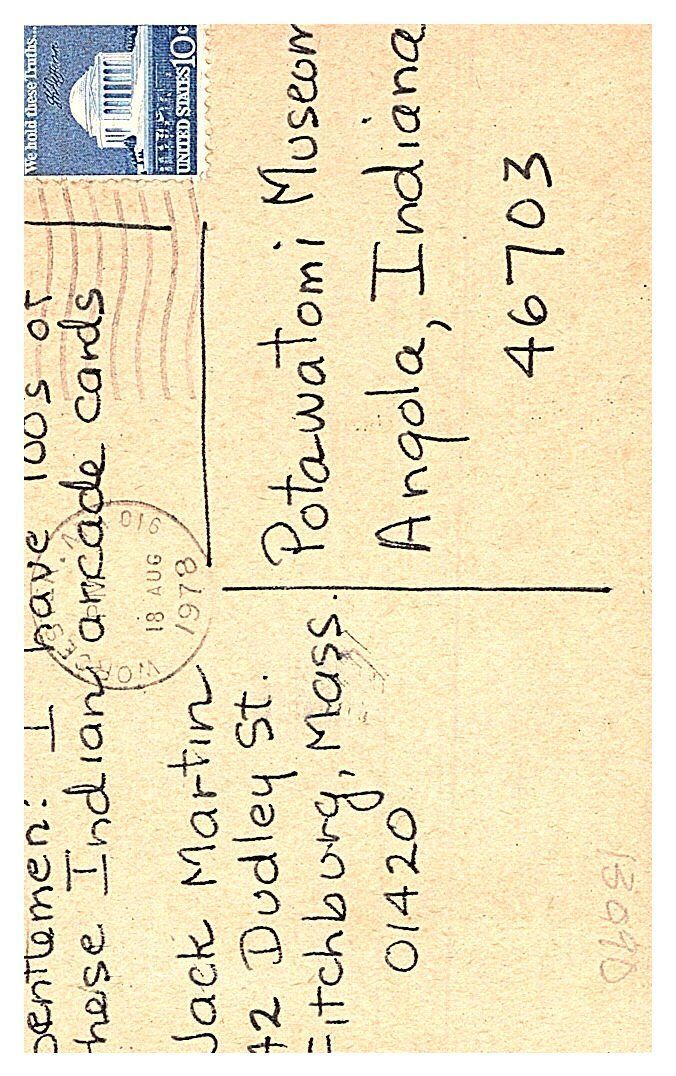 We hold these Truths...
UNITED STATES 10c
Gentlemen: I have 100s of
these Indian arcade cards
016
18 AUG
1978
Jack Martin
42 Dudley St.
Fitchburg, Mass.
01420
Potawatomi Museum
Angola, Indiana
46703